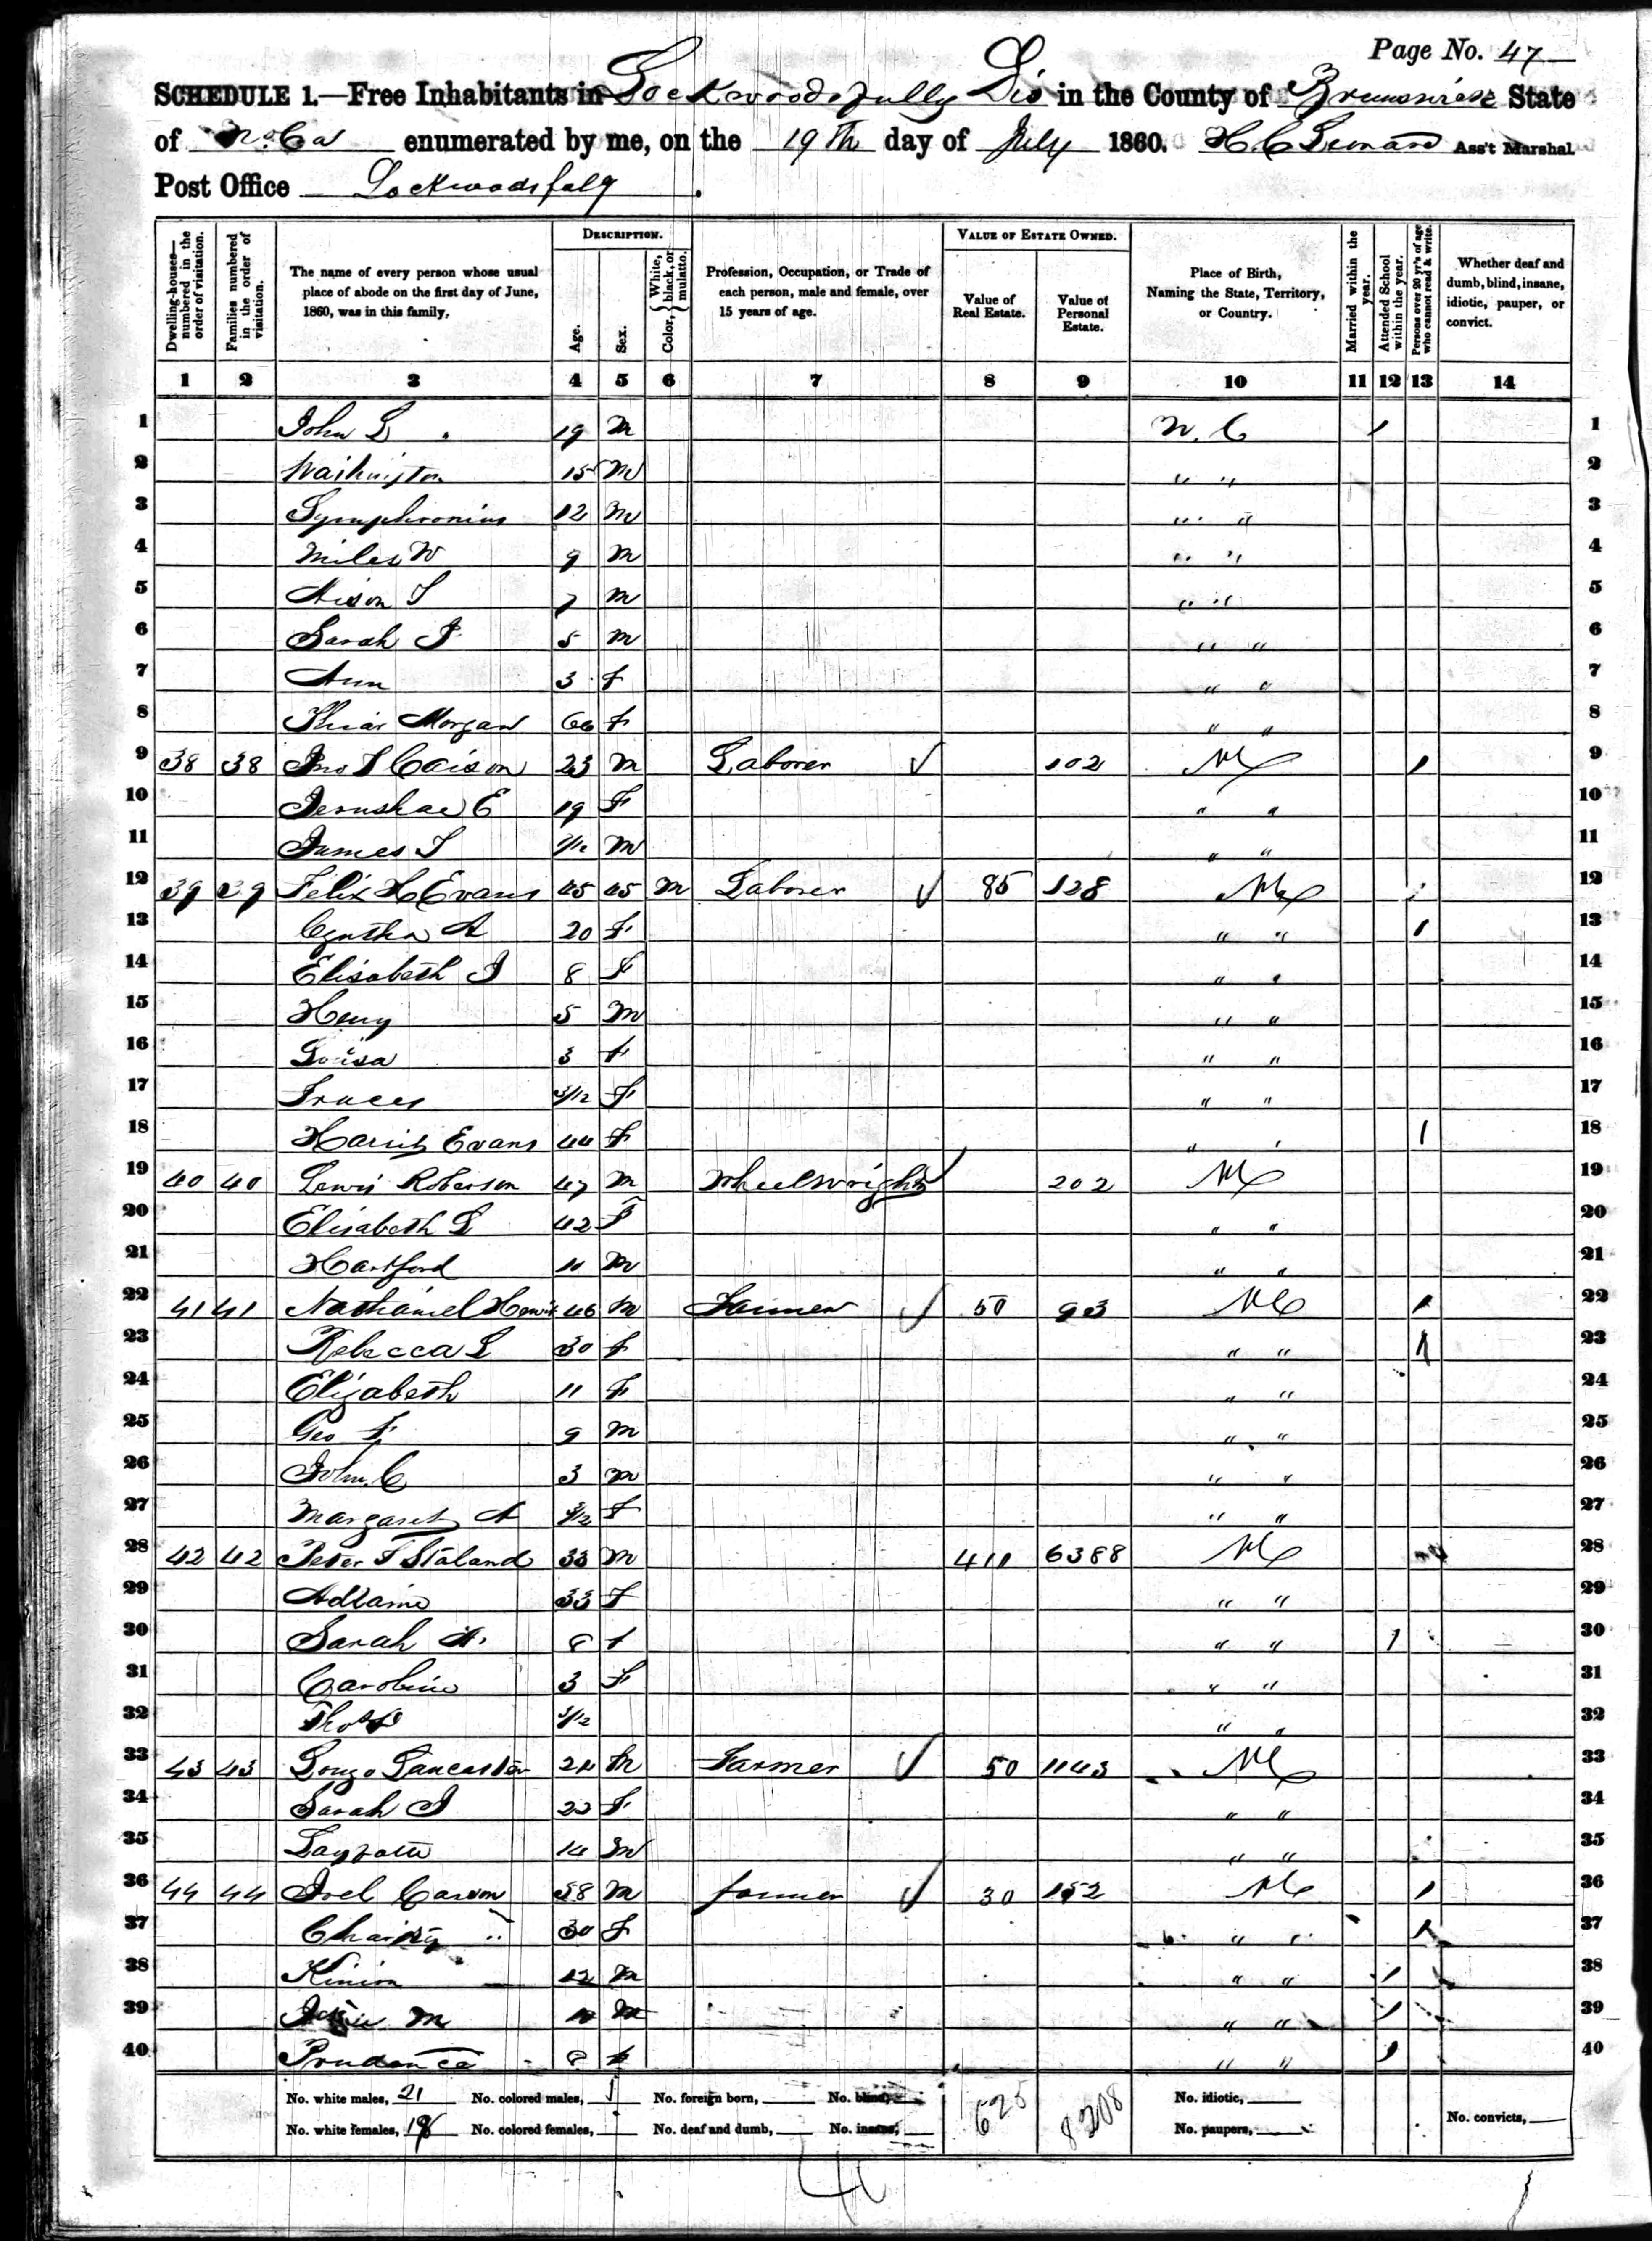 Page No. 47
SCHEDULE 1.—Free Inhabitants in Lockwoodsfully Dis in the County of Brunswick State
of No Ca enumerated by me, on the 19th day of July 1860. H. C. Ass't Marshal.
Post Office Lockwoodsfolly.
Dwelling-houses—numbered in the order of visitation.
Families numbered in the order of visitation.
The name of every person whose usual place of abode on the first day of June, 1860, was in this family.
DESCRIPTION.
Age.
Sex.
Color, { White, black, or mulatto.
Profession, Occupation, or Trade of each person, male and female, over 15 years of age.
VALUE OF ESTATE OWNED.
Value of Real Estate.
Value of Personal Estate.
Place of Birth, Naming the State, Territory, or Country.
Married within the year.
Attended School within the year.
Persons over 20 yr's of age who cannot read & write.
Whether deaf and dumb, blind, insane, idiotic, pauper, or convict.
1 2 3 4 5 6 7 8 9 10 11 12 13 14
1 John L 19 M N. C / 1
2 Washington 15 M " " 2
3 Symphronius 12 M " " 3
4 Miles W 9 M " " 4
5 7 M " " 5
6 Sarah J 5 M " " 6
7 Ann 3 F " " 7
8 Morgan 66 F " " 8
9 38 38 Jno Caison 23 M Laborer ✓ 102 NC / 9
10 E 19 F " " 10
11 James M " " 11
12 39 39 Felix H Evans 45 45 M Laborer ✓ 85 128 NC 12
13 Cyntha A 20 F " " / 13
14 Elisabeth J 8 F " " 14
15 Henry 5 M " " 15
16 Louisa 3 F " " 16
17 3/12 F " " 17
18 Evans 44 F " " / 18
19 40 40 Lewis Roberson 47 M Wheelwright ✓ 202 NC 19
20 Elisabeth L 42 F " " 20
21 Hartford 11 M " " 21
22 41 41 Nathaniel 46 M Farmer ✓ 50 93 NC / 22
23 Rebecca L 30 F " " / 23
24 Elizabeth 11 F " " 24
25 Geo F 9 M " " 25
26 John C 3 M " " 26
27 Margaret A F " " 27
28 42 42 Peter 33 M 411 6388 NC 28
29 33 F " " 29
30 Sarah A. 8 F " " / 30
31 Caroline 3 F " " 31
32 " " 32
33 43 43 Lancaster 24 M Farmer ✓ 50 1143 NC 33
34 Sarah J 22 F " " 34
35 M " " 35
36 44 44 Joel 38 M farmer ✓ 30 152 NC / 36
37 Charity " 30 F " " / 37
38 Kinion 12 M " " / 38
39 M M " " / 39
40 Prudence 8 F " " / 40
No. white males, 21 No. colored males, 1 No. foreign born, No. blind, 625 8208 No. idiotic,
No. white females, No. colored females, No. deaf and dumb, No. insane, No. paupers, No. convicts,